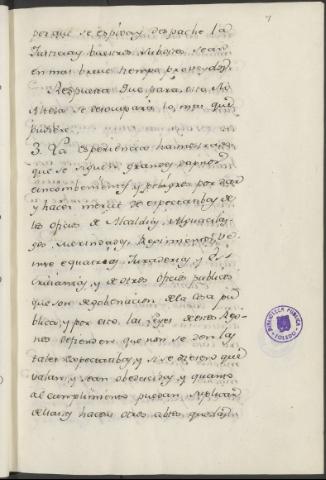 7
por que se espida y despache la
Justicia y buenos subcesos sean
en mas breve tiempo proveydos.
Respuesta. Que para esto Su
Alteza se desocupará lo mas que
pudiere.
3. La esperiencia ha mostrado
que se siguen grandes daños
e inconbenientes y peligros por dar
y hacer merced de espectatibas de
los oficios de Alcaldias, Alguacilaz-
gos, Merindades, Regimientos, Ve
inte e quatrias, Juraderias y Es-
cribanias, y de otros oficios publicos
que son de gobernacion de la cosa pú
blica, y por esto las leyes de estos Rey-
nos defienden que non se den las
tales espectatibas, y si se dieren que
valan y sean obedecidas y quanto
al cumplimiento puedan suplicar
de ellas y hacer otros abtos, quedan
BIBLIOTECA PUBLICA
TOLEDO